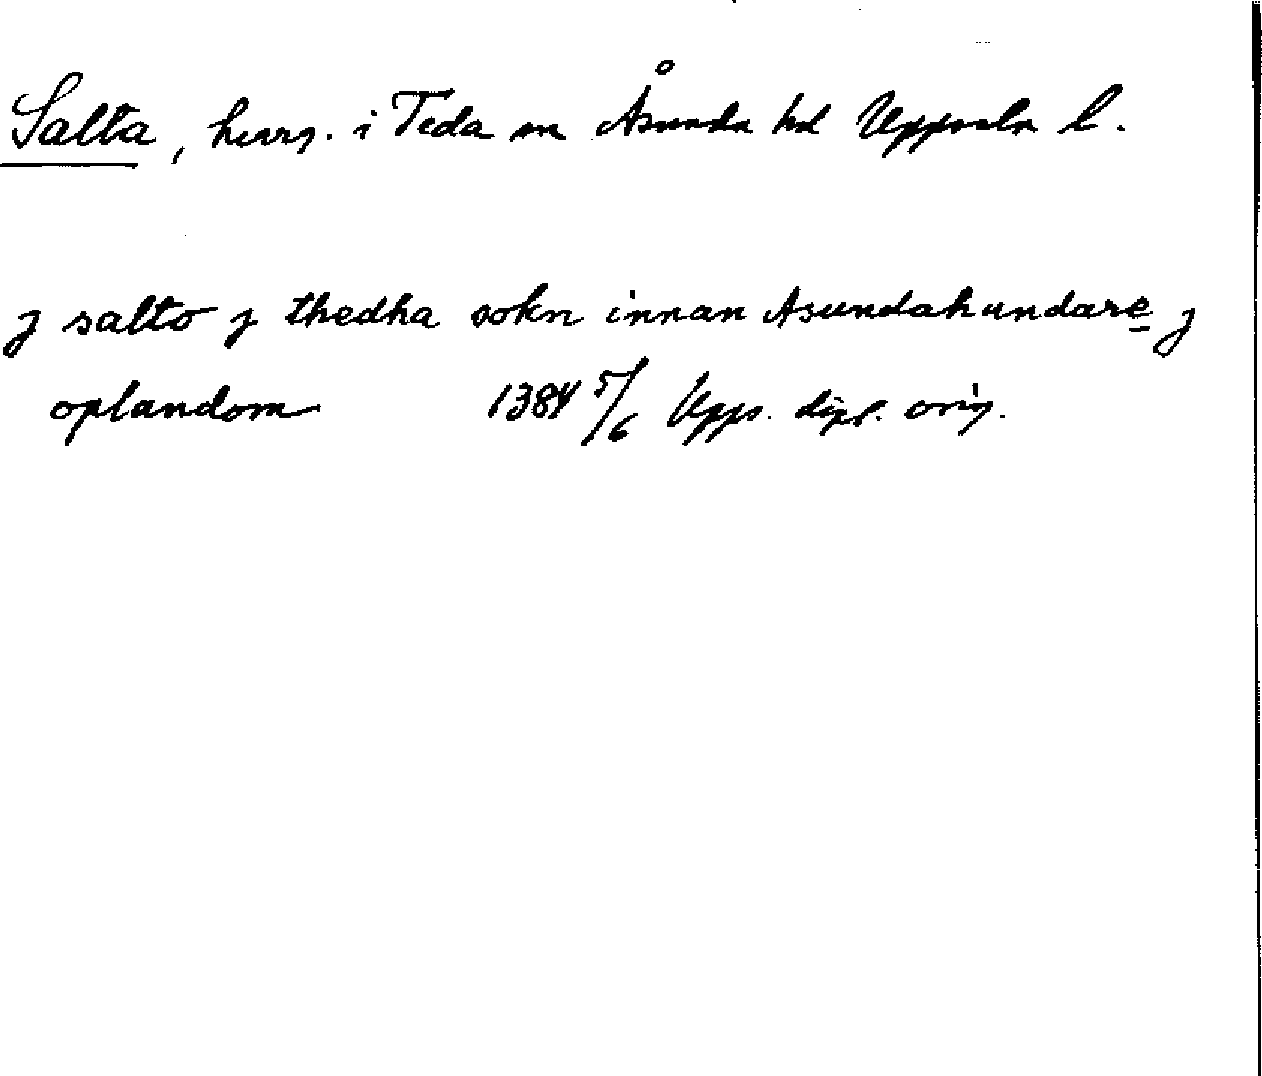 Salta, herrg. i Teda sn Åsunda hd Uppsala l.
j salto j thedha sokn innan Asundahundare j
oplandom 1384 5/6 Upps. dipl. orig.